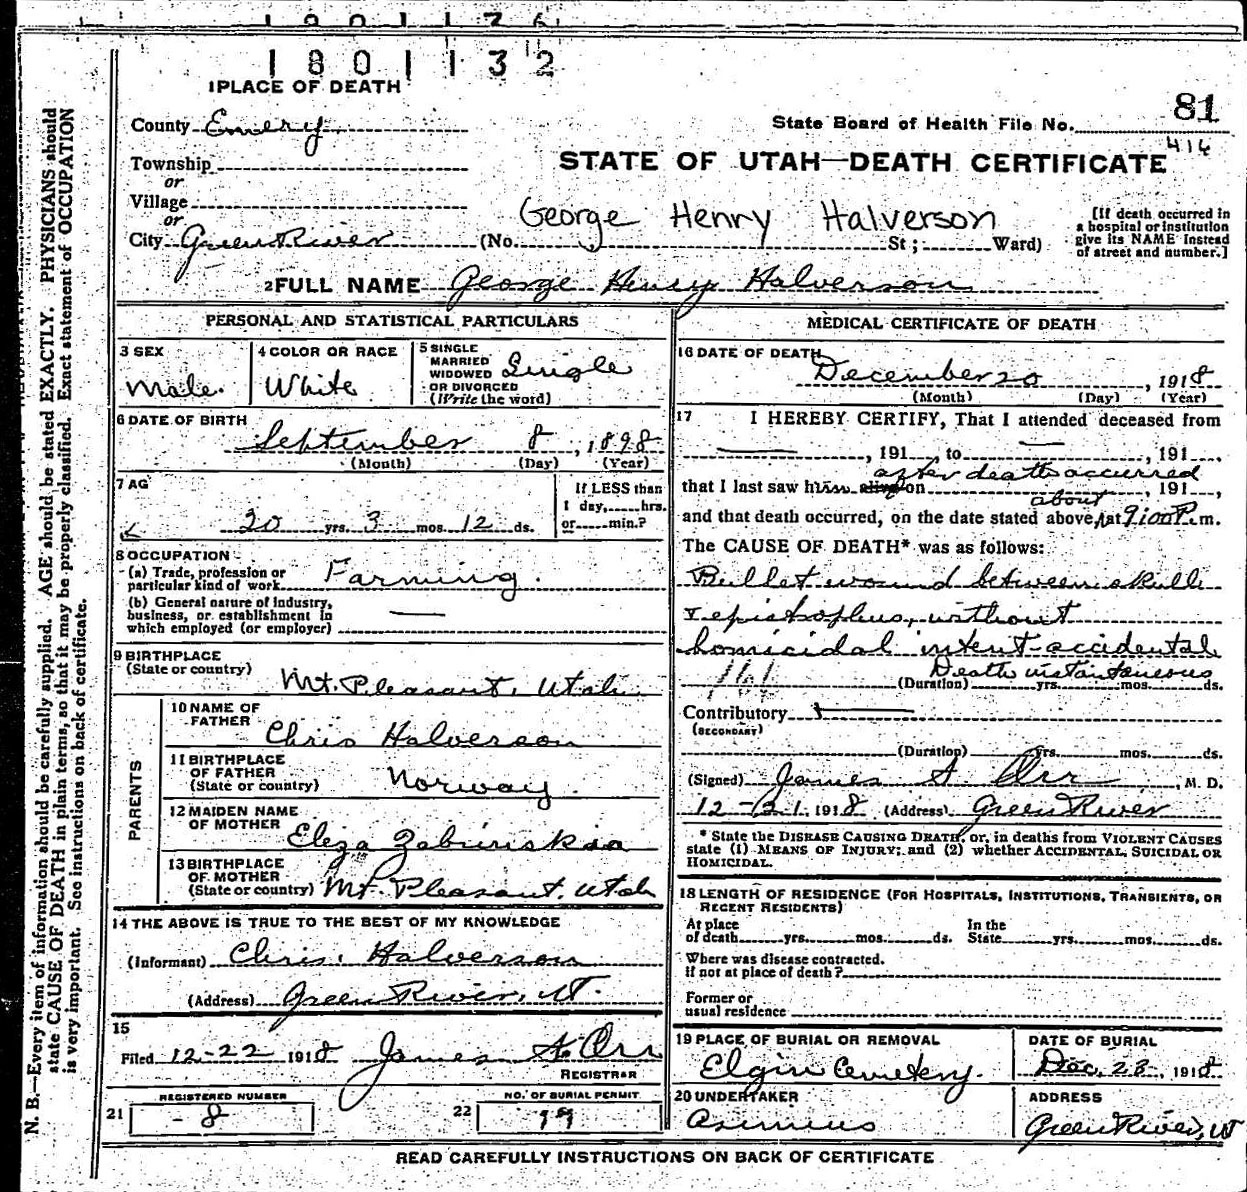 1801132
1 PLACE OF DEATH
81
County Emery
State Board of Health File No.
416
Township
STATE OF UTAH—DEATH CERTIFICATE
or
Village
or
George Henry Halverson
City Green River (No. St; Ward)
[If death occurred in
a hospital or institution
give its NAME instead
of street and number.]
2 FULL NAME George Henry Halverson
PERSONAL AND STATISTICAL PARTICULARS
3 SEX
Male
4 COLOR OR RACE
White
5 SINGLE
MARRIED
WIDOWED
OR DIVORCED
(Write the word)
Single
6 DATE OF BIRTH
September 8, 1898
(Month) (Day) (Year)
7 AG
20 yrs. 3 mos. 12 ds.
If LESS than
1 day, hrs.
or min.?
8 OCCUPATION
(a) Trade, profession or
particular kind of work Farming.
(b) General nature of industry,
business, or establishment in
which employed (or employer)
9 BIRTHPLACE
(State or country)
Mt. Pleasant, Utah
PARENTS
10 NAME OF
FATHER
Chris Halverson
11 BIRTHPLACE
OF FATHER
(State or country) Norway.
12 MAIDEN NAME
OF MOTHER
Eliza
13 BIRTHPLACE
OF MOTHER
(State or country) Mt. Pleasant, Utah
14 THE ABOVE IS TRUE TO THE BEST OF MY KNOWLEDGE
(Informant) Chris. Halverson
(Address) Green River, UT.
15
Filed 12-22 1918 James A. Orr
REGISTRAR
REGISTERED NUMBER
21 - 8
NO. OF BURIAL PERMIT
22 19
MEDICAL CERTIFICATE OF DEATH
16 DATE OF DEATH
December 20, 1918
(Month) (Day) (Year)
17 I HEREBY CERTIFY, That I attended deceased from
, 191 , to , 191 ,
after death occurred
that I last saw him alive on , 191 ,
about
and that death occurred, on the date stated above, at 9:00 P. m.
The CAUSE OF DEATH* was as follows:
Bullet wound between skull
& epistropheus, without
homicidal intent-accidental
Death instantaneous
(Duration) yrs. mos. ds.
Contributory
(SECONDARY)
(Duration) yrs. mos. ds.
(Signed) James A Orr, M. D.
12-21, 1918 (Address) Green River
* State the DISEASE CAUSING DEATH, or, in deaths from VIOLENT CAUSES
state (1) MEANS OF INJURY; and (2) whether ACCIDENTAL, SUICIDAL OR
HOMICIDAL.
18 LENGTH OF RESIDENCE (FOR HOSPITALS, INSTITUTIONS, TRANSIENTS, OR
RECENT RESIDENTS)
At place
of death yrs. mos. ds.
In the
State yrs. mos. ds.
Where was disease contracted.
If not at place of death?
Former or
usual residence
19 PLACE OF BURIAL OR REMOVAL
Elgin Cemetery.
DATE OF BURIAL
Dec. 23, 1918
20 UNDERTAKER
ADDRESS
Green River, UT
READ CAREFULLY INSTRUCTIONS ON BACK OF CERTIFICATE
N. B.—Every item of information should be carefully supplied. AGE should be stated EXACTLY. PHYSICIANS should
state CAUSE OF DEATH in plain terms, so that it may be properly classified. Exact statement of OCCUPATION
is very important. See instructions on back of certificate.